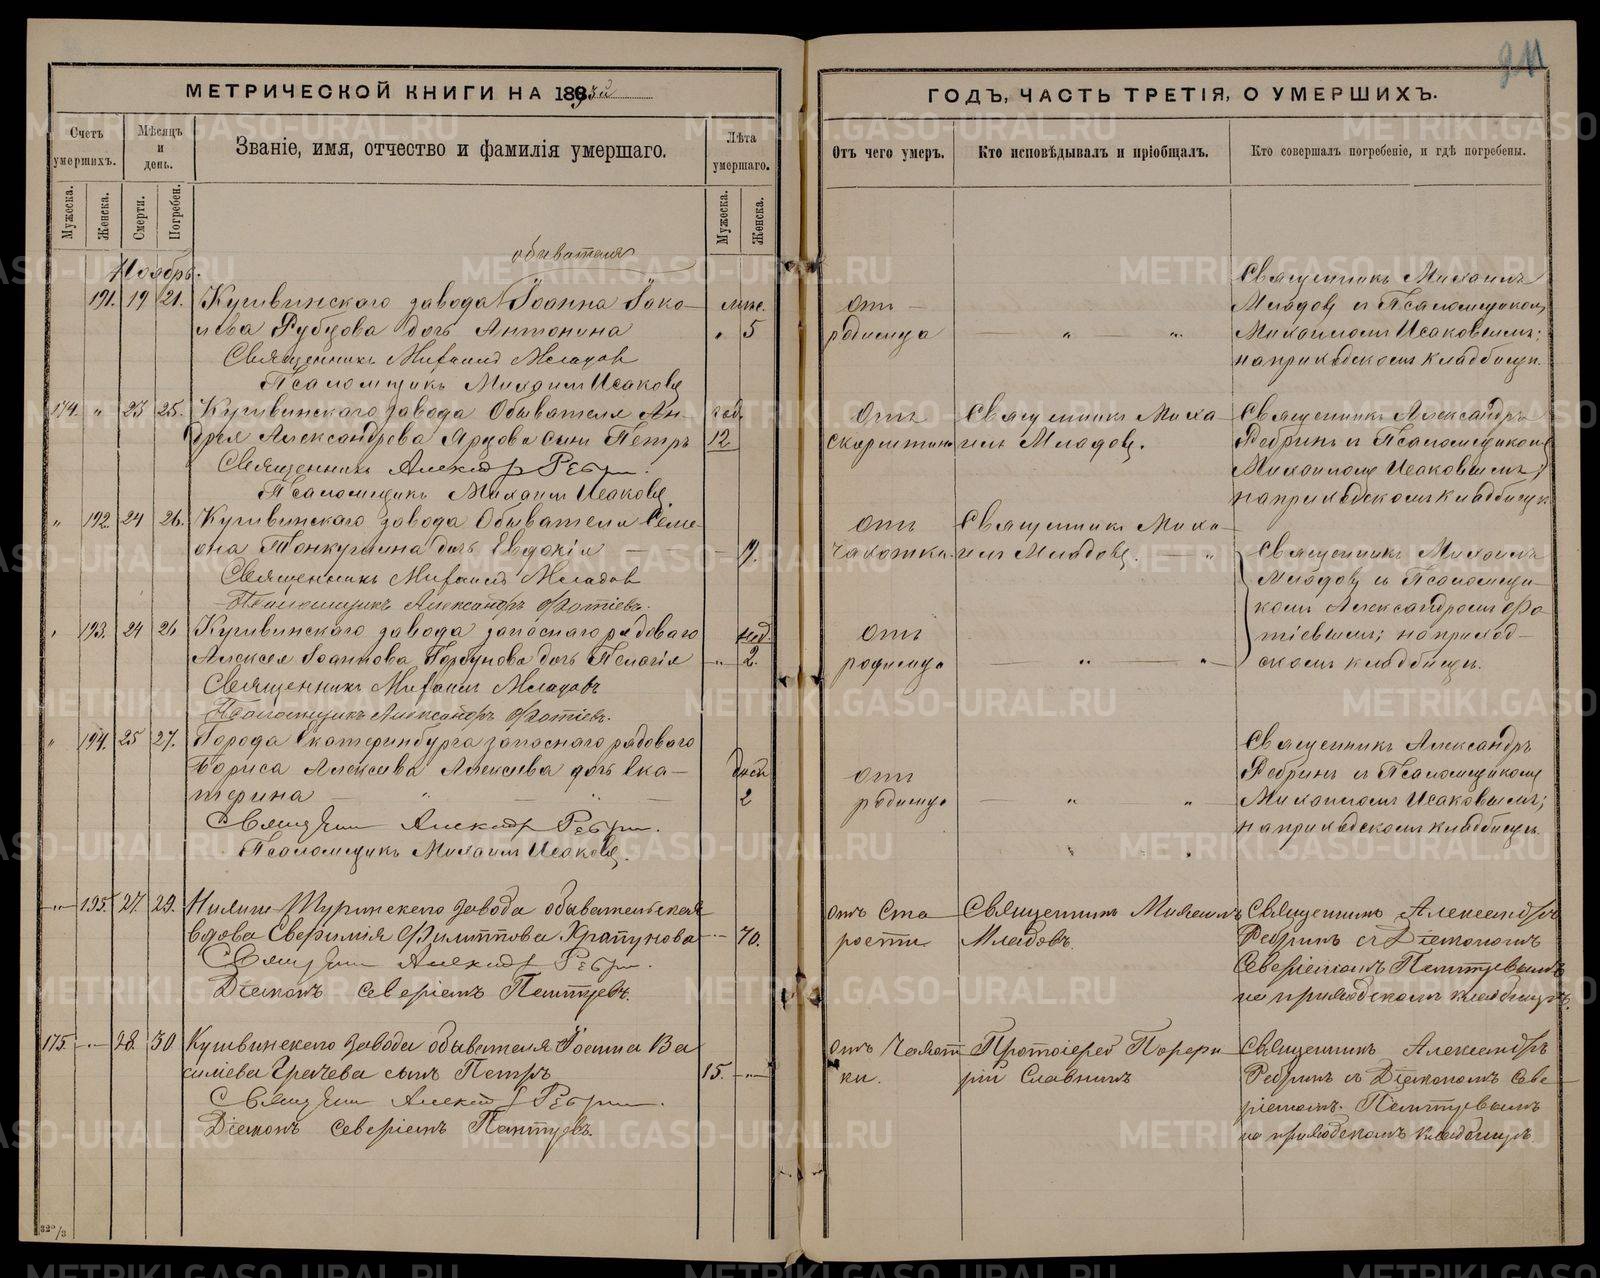 211
МЕТРИЧЕСКОЙ КНИГИ НА 1893й
ГОДЪ, ЧАСТЬ ТРЕТІЯ, О УМЕРШИХЪ.
Счетъ умершихъ.
Мѣсяцъ и день.
Званіе, имя, отчество и фамилія умершаго.
Лѣта умершаго.
Отъ чего умеръ.
Кто исповѣдывалъ и пріобщалъ.
Кто совершалъ погребеніе, и гдѣ погребены.
Мужеска.
Женска.
Смерти.
Погребен.
Мужеска.
Женска.
Ноябрь.
обывателя
191. 19 21. Кушвинскаго завода Іоанна Іако-
влева Рубцова дочь Антонина " 5
Священникъ Михаилъ Младов
Псаломщикъ Михаилъ Исаковъ
отъ
родимца " "
Священникъ Михаилъ
Младовъ и Псаломщикомъ
Михаиломъ Исаковымъ;
на приходскомъ кладбищѣ.
174. " 23 25. Кушвинскаго завода Обывателя Ан- год.
дрея Александрова Ярцова сынъ Петръ 12
Священникъ Александръ Ребрин.
Псаломщикъ Михаилъ Исаковъ
Отъ
скарлатины
Священникъ Миха
илъ Младовъ.
Священникъ Александръ
Ребринъ и Псаломщикомъ
Михаиломъ Исаковымъ;
на приходскомъ кладбищѣ
" 192. 24 26. Кушвинскаго завода Обывателя Симе-
она Тонкушина дочь Евдокія — 19.
Священникъ Михаилъ Младов
Псаломщикъ Александръ Фотіевъ.
Отъ
чахотки
Священникъ Миха-
илъ Младовъ. — "
Священникъ Михаилъ
Младовъ и Псаломщи-
комъ Александромъ Фо
тіевымъ; на приход-
скомъ кладбищѣ.
" 193. 24 26 Кушвинскаго завода запаснаго рядоваго нед.
Алексея Іоаннова Горбунова дочь Пелагія " 2.
Священникъ Михаилъ Младовъ
Псаломщикъ Александръ Фотіевъ.
Отъ
родимца — " — "
" 194. 25 27. Города Екатеринбурга запаснаго рядоваго
Бориса Алексеева Алексеева дочь Ека- дней
терина — " — " — 2
Священник Александр Ребрин.
Псаломщикъ Михаилъ Исаковъ.
отъ
родимца — " "
Священникъ Александръ
Ребринъ и Псаломщикомъ
Михаиломъ Исаковымъ;
на приходскомъ кладбищѣ.
— " — 195. 27. 29. Нижне Туринскаго завода обывательская
вдова Евфимія Филиппова Храпунова — " — 70.
Священник Александр Ребрин.
Діаконъ Северіанъ Пантуевъ.
отъ Ста
рости
Священникъ Михаилъ
Младовъ.
Священникъ Александръ
Ребринъ съ Діакономъ
Северіаномъ Пантуевымъ
на приходскомъ кладбищѣ.
175. — " — 28. 30 Кушвинскаго завода обывателя Іоанна Ва
силіева Грачева сынъ Петръ 15. — " —
Священник Александр Ребрин.
Діаконъ Северіанъ Пантуевъ.
отъ Чахот
ки.
Протоіерей Порфи
рій Славнинъ
Священникъ Александръ
Ребринъ съ Діакономъ Севе-
ріаномъ. Пантуевымъ
на приходскомъ кладбищѣ.
320/3
METRIKI.GASO-URAL.RU